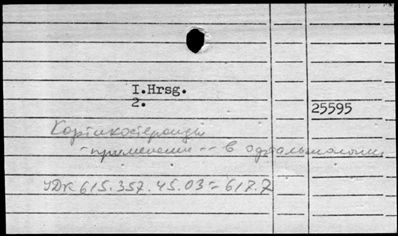 I.Hrsg.
2.
25595
Кортикостероиды
- применение -- в офтальмологии
УДК 615.357.45.03 = 617.7